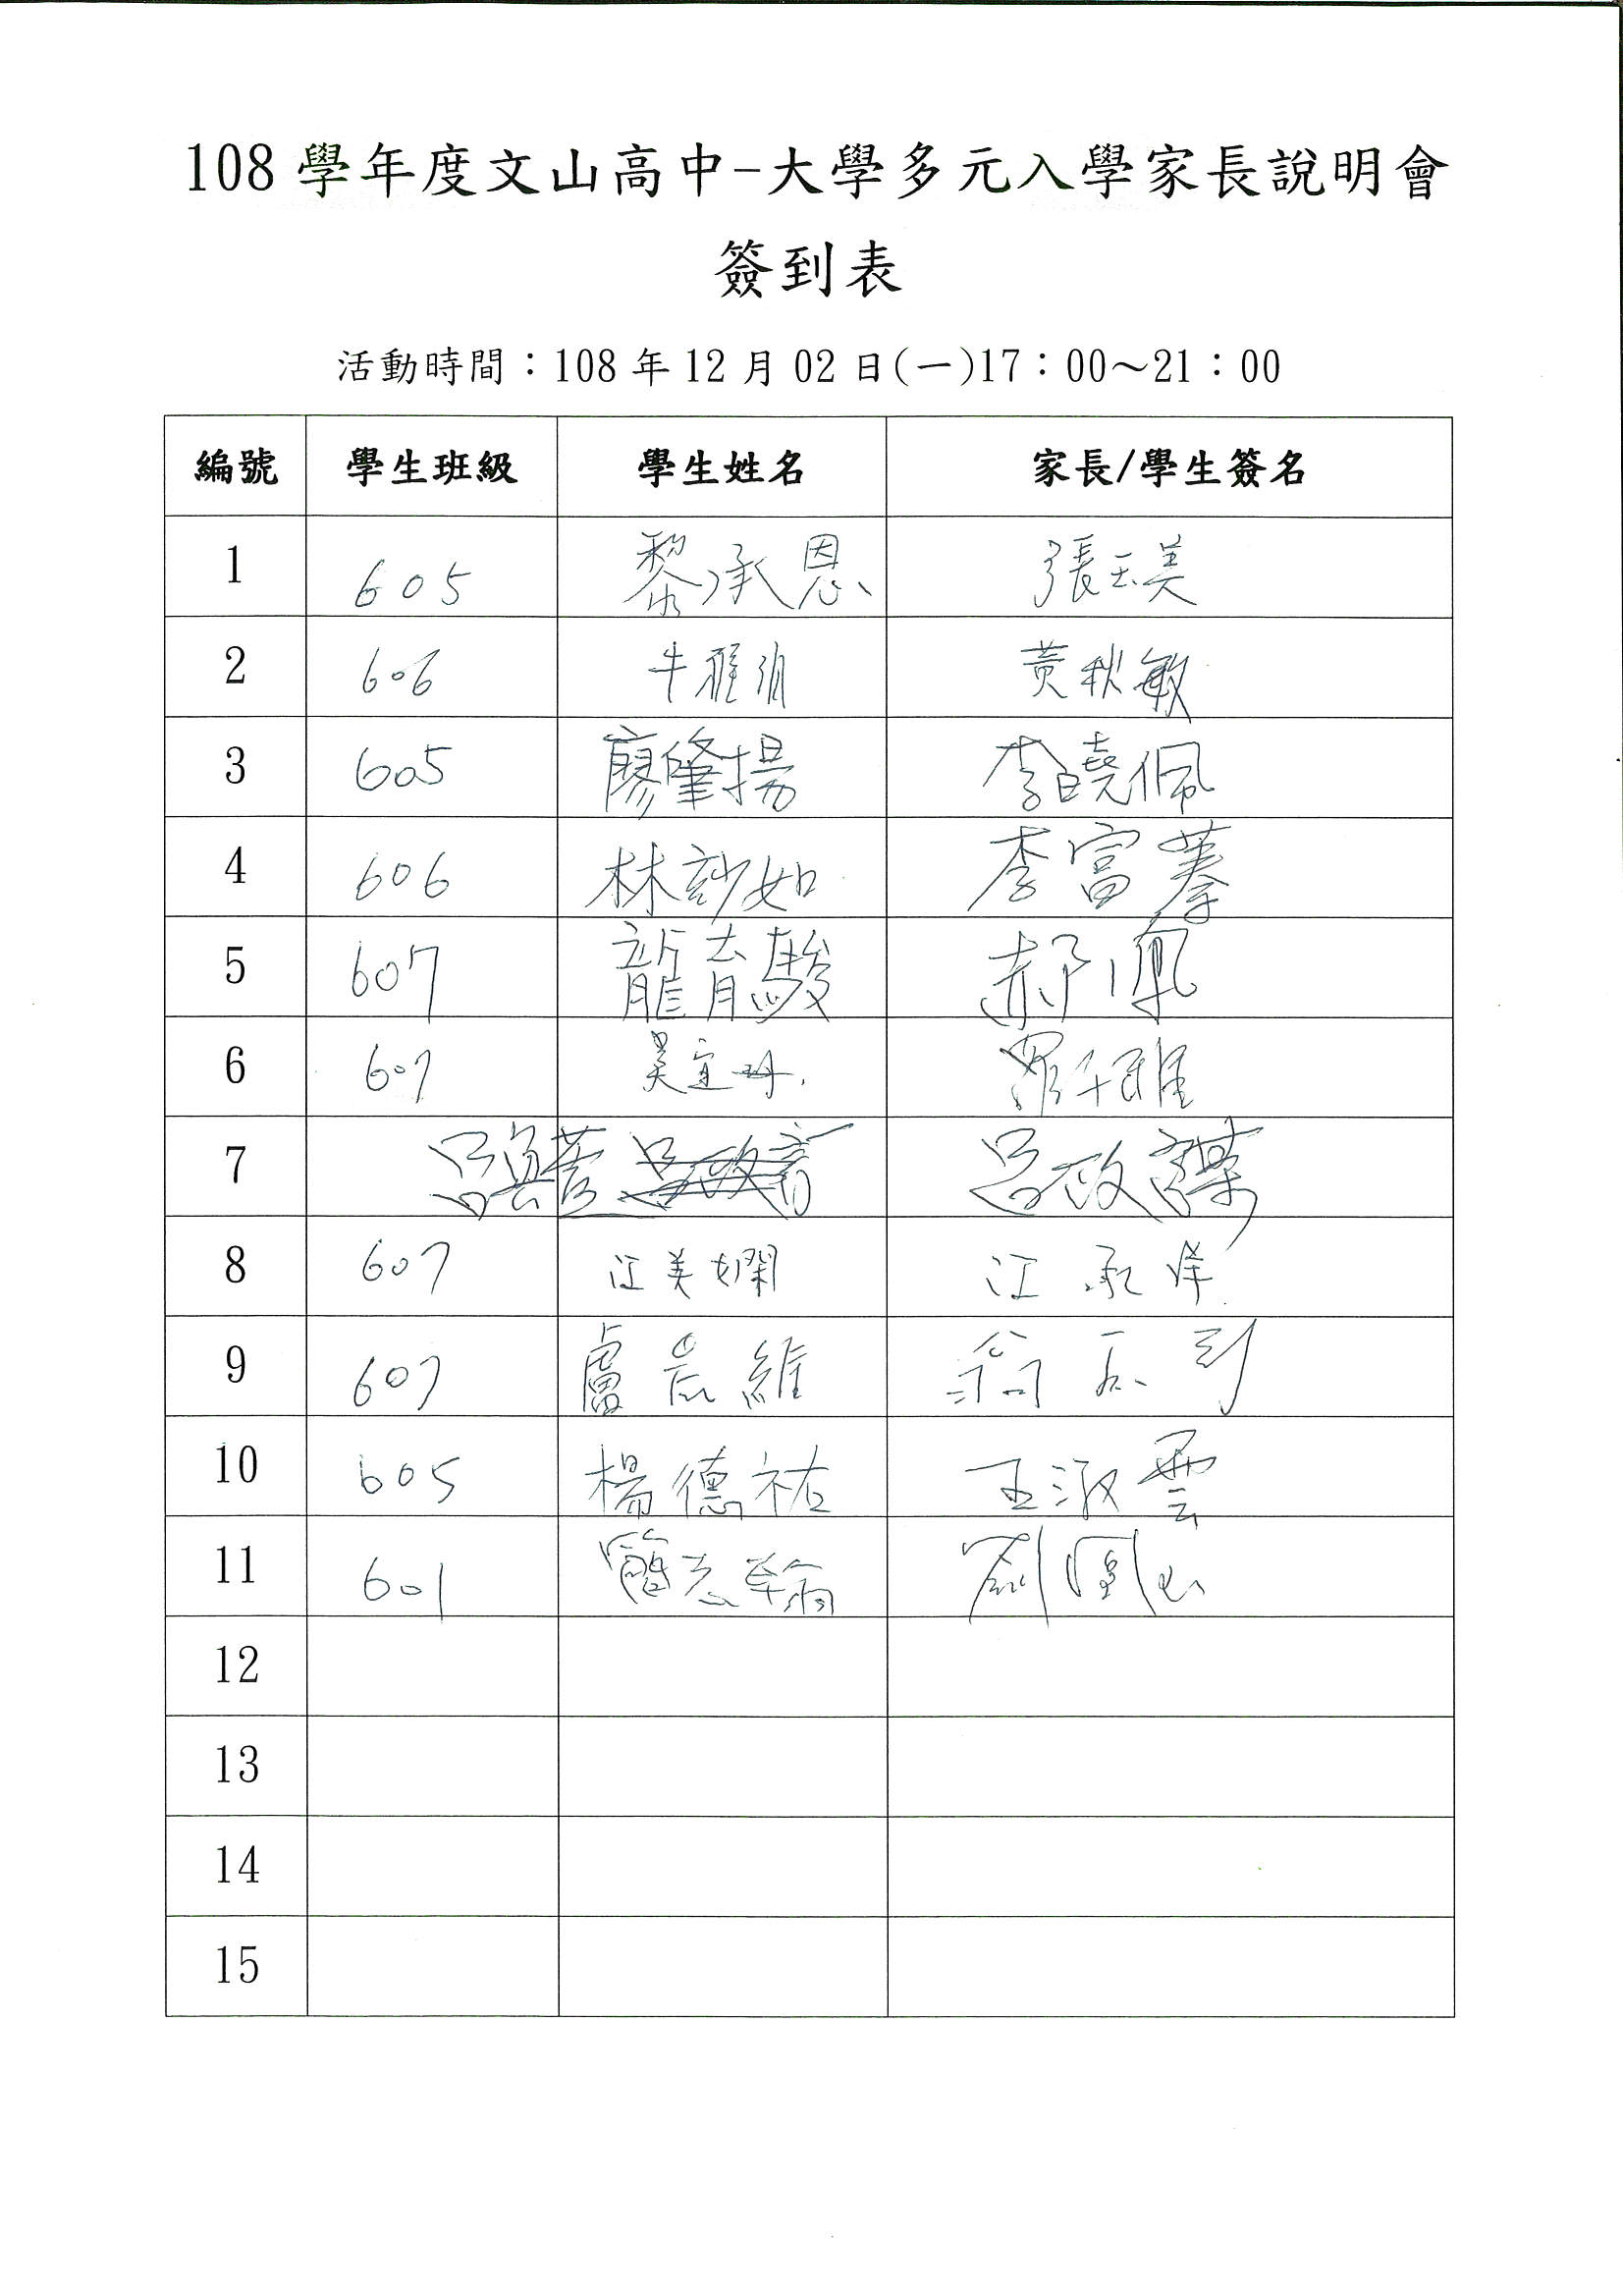 108 學年度文山高中-大學多元入學家長說明會
簽到表
活動時間：108 年 12 月 02 日(一)17：00～21：00
編號 學生班級 學生姓名 家長/學生簽名
1 605 黎承恩 張玉美
2 606 牛雅 黃秋敏
3 605 廖肇揚 李曉佩
4 606 林妙如 李富蓁
5 607 龍育駿 郝珮
6 607 吳宜珊 羅千雅
7 呂 呂政 呂政謀
8 607 江美嫻 江承洋
9 607 盧彥維 翁
10 605 楊德祐 王淑雲
11 601 簡志翰 劉鳳
12
13
14
15